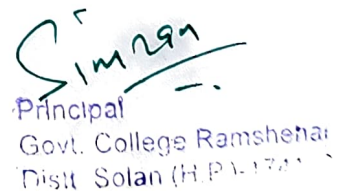 Simran
Principal
Govt. College Ramshehar
Distt. Solan (H.P.)-